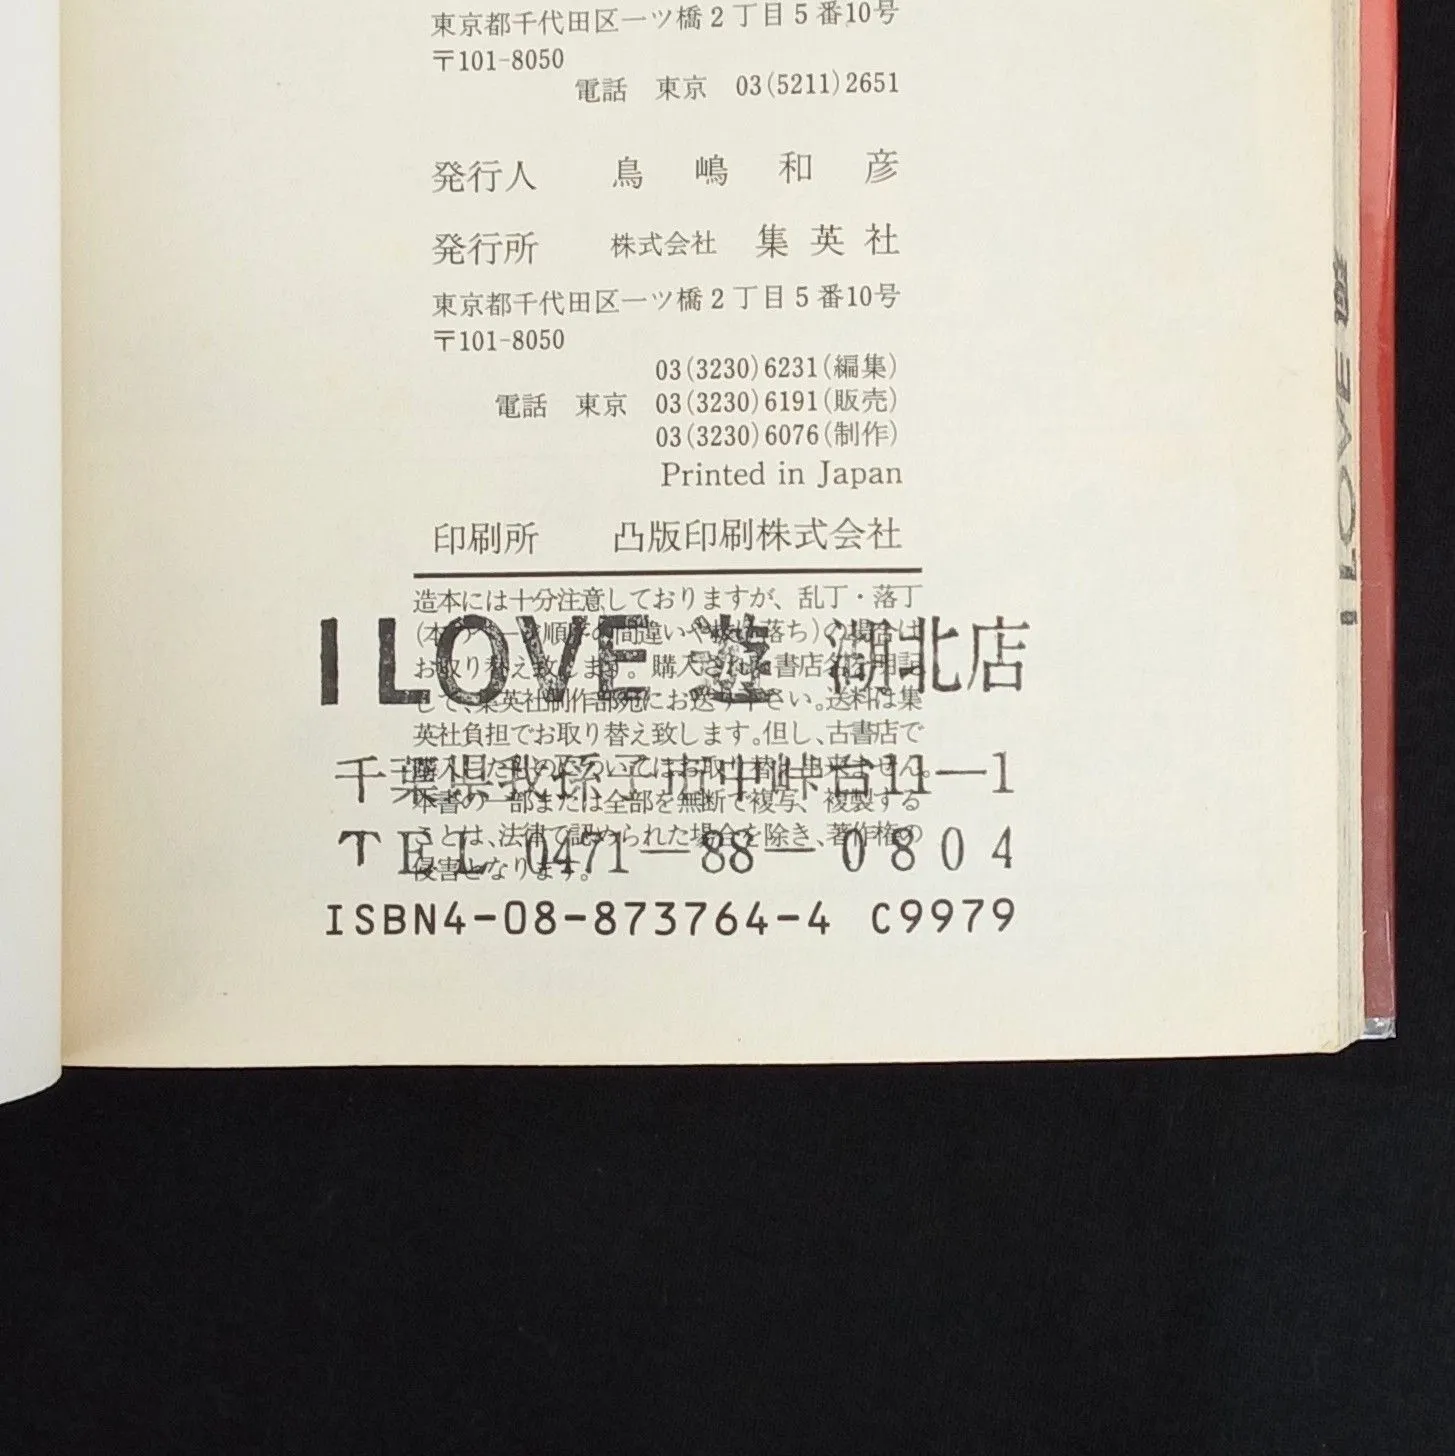 東京都千代田区一ツ橋2丁目5番10号
〒101-8050
電話 東京 03(5211)2651
発行人 鳥嶋和彦
発行所 株式会社 集英社
東京都千代田区一ツ橋2丁目5番10号
〒101-8050
03(3230)6231(編集)
電話 東京 03(3230)6191(販売)
03(3230)6076(制作)
Printed in Japan
印刷所 凸版印刷株式会社
造本には十分注意しておりますが、乱丁・落丁
(本のページ順序の間違いや抜け落ち)の場合は
お取り替え致します。購入された書店名を明記
して、集英社制作部宛にお送り下さい。送料は集
英社負担でお取り替え致します。但し、古書店で
購入したものについてはお取り替え出来ません。
本書の一部または全部を無断で複写、複製する
ことは、法律で認められた場合を除き、著作権の
侵害となります。
I LOVE 遊 湖北店
千葉県我孫子市中峠台11―1
TEL 0471―88―0804
ISBN4-08-873764-4 C9979
I LOVE 遊